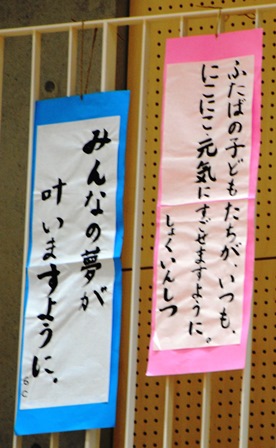 ふたばの子どもたちが、いつも、
にこにこ元気にすごせますように。
しょくいんしつ
みんなの夢が
叶いますように。